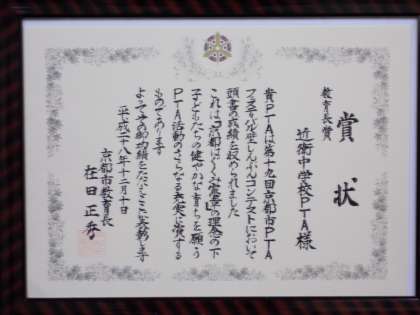 賞状
教育長賞
近衛中学校PTA様
貴PTAは第十九回京都市PTA
フェスティバル壁しんぶんコンテストにおいて
頭書の成績を収められました
これは「京都はぐくみ憲章」の理念の下
子どもたちの健やかな育ちを願う
PTA活動のさらなる充実に資する
ものであります
よってその功績をたたえここに表彰します
平成二十八年十二月十日
京都市教育長
在田正秀